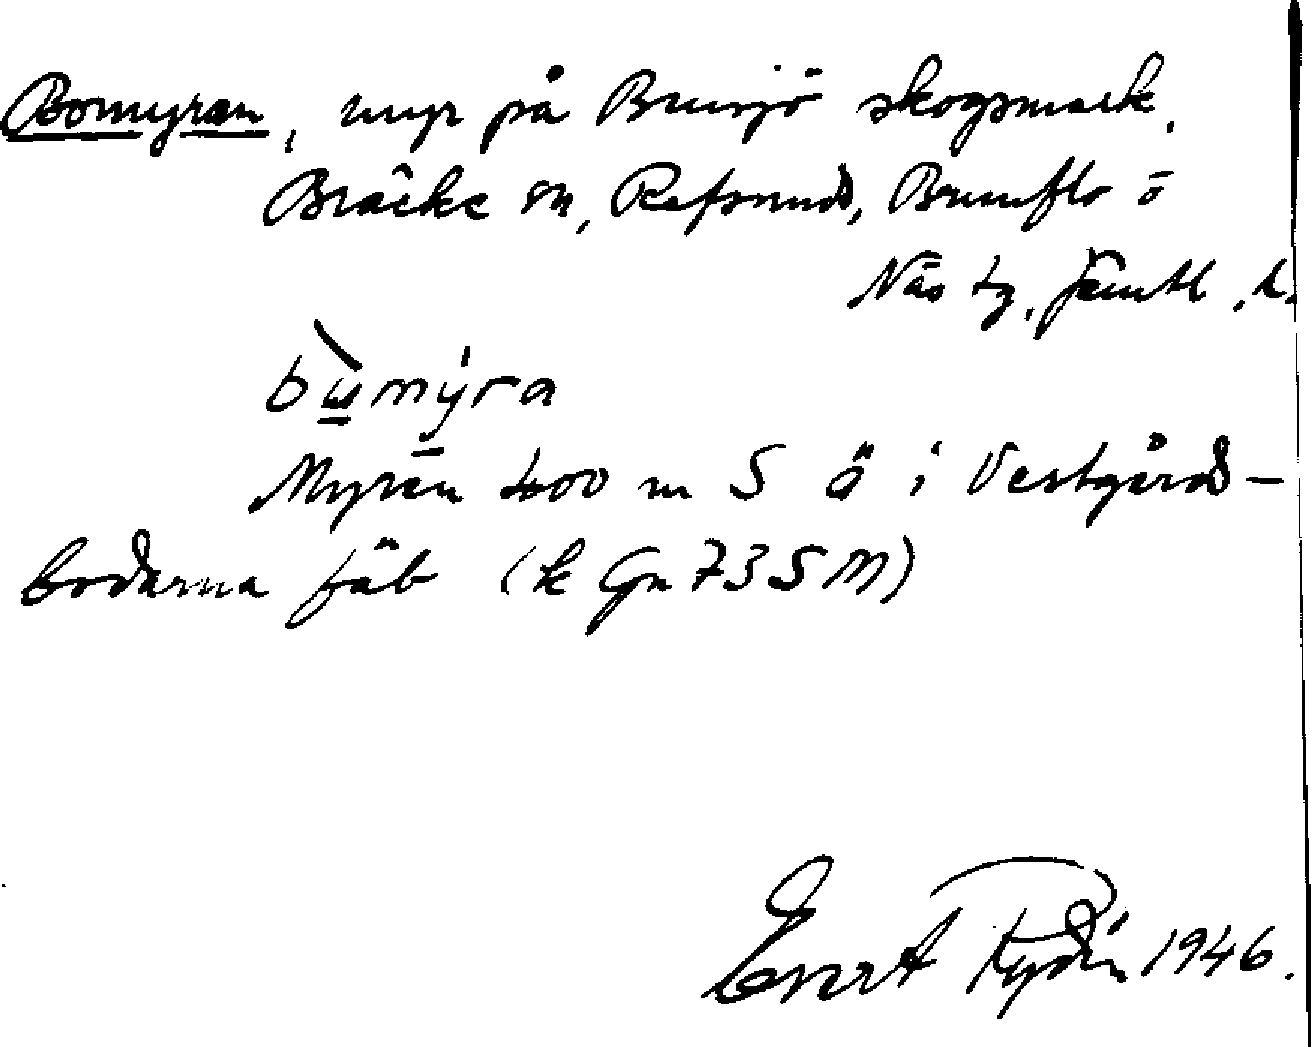 Bomyran, myr på Bensjö skogsmark,
Bräcke sn, Refsunds, Brunflo o
Näs tg, Jämtl. l.
bùmýra
Myren 400 m S ö i Vestgårds-
bodarna fäb (k Gn 73 S M)
Evert Rydén 1946.